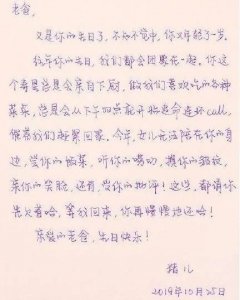 老爸，
又是你的生日了，不知不觉中，你又年轻了一岁。
往年你的生日，我们都会团聚在一起，你这
个寿星总是会亲自下厨，做我们喜欢吃的各种
菜菜，总是会从下午四点就开始追命连环call，
催着我们赶紧回家。今年，女儿无法陪在你的身
边，尝你的饭菜，听你的唠叨，摸你的
亲你的笑脸，还有，受你的批评！这些，都请你
先欠着哈，等我回来，你再慢慢地还哈！
亲爱的老爸，生日快乐！
猪儿
2019年10月25日